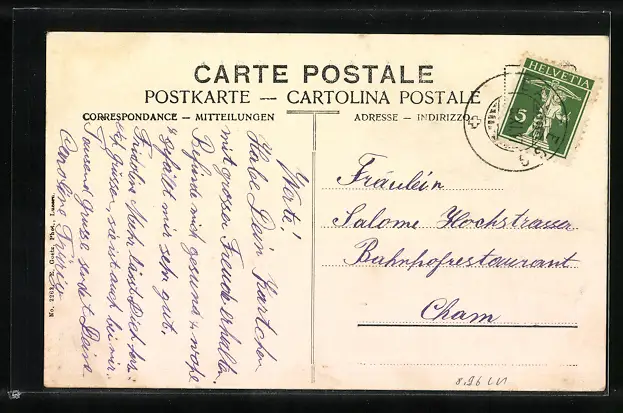 CARTE POSTALE
POSTKARTE — CARTOLINA POSTALE
CORRESPONDANCE — MITTEILUNGEN
ADRESSE — INDIRIZZO
HELVETIA
5
Werte!
Habe Dein Kärtchen
mit grosser Freude erhalten.
Befinde mich gesund &
& gefällt mir sehr gut.
Fridolin lässt Dich herz-
grüssen, ist auch bei mir.
Tausend Grüsse sendet Deine
Caroline
Fräulein
Salome Hochstrasser
Bahnhofrestaurant
Cham
No. 2263 E. Goetz, Phot., Luzern.